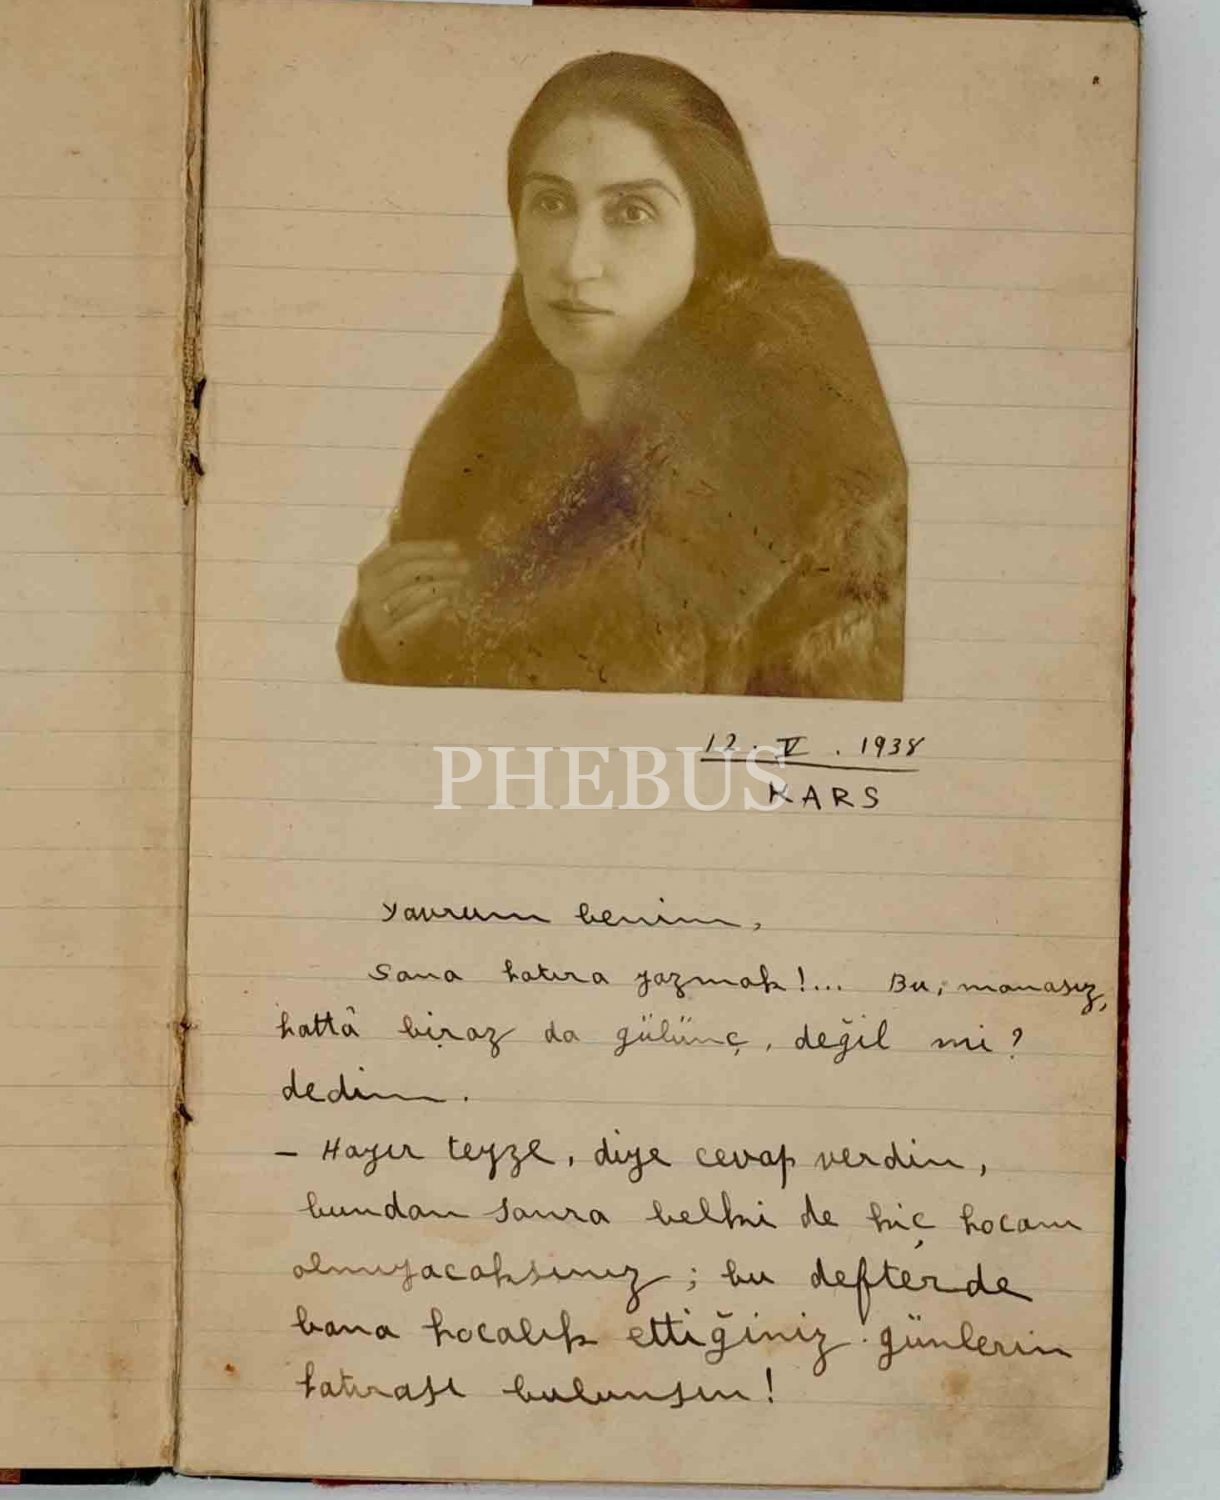 12 . V . 1938
PHEBUS
KARS
Yavrum benim,
Sana hatıra yazmak!... Bu, manasız,
hattâ biraz da gülünç, değil mi?
dedim.
– Hayır teyze, diye cevap verdin,
bundan sonra belki de hiç hocam
olmıyacaksınız ; bu defterde
bana hocalık ettiğiniz günlerin
hatırası bulunsun!